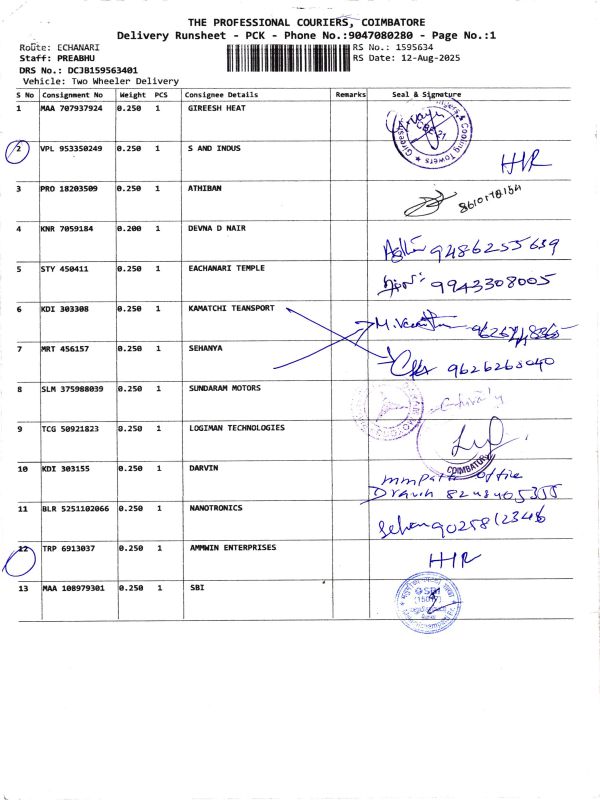 THE PROFESSIONAL COURIERS, COIMBATORE
Delivery Runsheet - PCK - Phone No.:9047080280 - Page No.:1
Route: ECHANARI RS No.: 1595634
Staff: PREABHU RS Date: 12-Aug-2025
DRS No.: DCJB159563401
Vehicle: Two Wheeler Delivery
S No Consignment No Weight PCS Consignee Details Remarks Seal & Signature
1 MAA 707937924 0.250 1 GIREESH HEAT
2 VPL 953350249 0.250 1 S AND INDUS
3 PRO 18203509 0.250 1 ATHIBAN
4 KNR 7059184 0.200 1 DEVNA D NAIR 9486255639
5 STY 450411 0.250 1 EACHANARI TEMPLE 9943308005
6 KDI 303308 0.250 1 KAMATCHI TEANSPORT
7 MRT 456157 0.250 1 SEHANYA 9626268040
8 SLM 375988039 0.250 1 SUNDARAM MOTORS
9 TCG 50921823 0.250 1 LOGIMAN TECHNOLOGIES
COIMBATORE
10 KDI 303155 0.250 1 DARVIN office
11 BLR 5251102066 0.250 1 NANOTRONICS
12 TRP 6913037 0.250 1 AMMWIN ENTERPRISES
13 MAA 108979301 0.250 1 SBI SBI